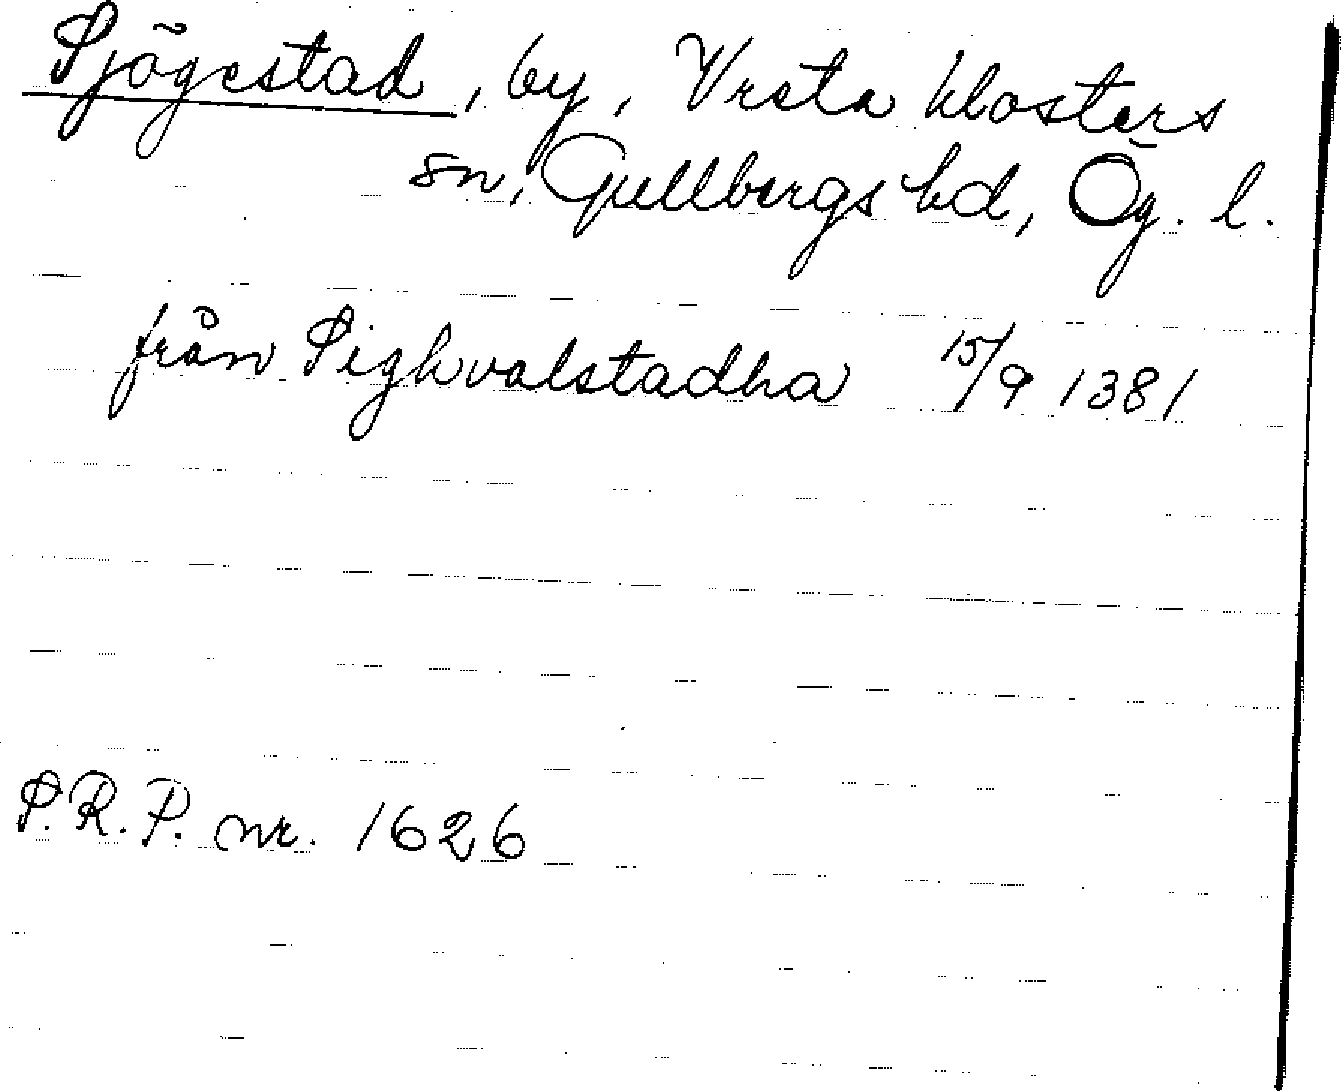 Sjögestad, by, Vreta klosters
sn, Gullbergs hd, Ög. l.
från Sighvalstadha 15/9 1381
S.R.P. nr. 1626